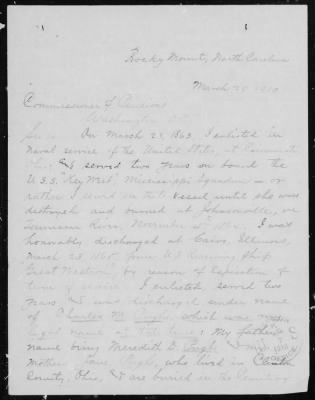 Rocky Mount, North Carolina
March 29
Commissioner of Pensions
Washington
Sir: On March 23, 1863, I enlisted in
naval service of the United States, at Cincinnati
Ohio & served two years on board the
U.S.S. "Key West", Mississippi Squadron - or
rather I served on that vessel until she was
destroyed and burned at Johnsonville, on
Tennessee River, November 4th 1864. I was
honorably discharged at Cairo, Illinois,
March 23, 1865, from U.S. Receiving Ship
Great Western, by reason of expiration of
time of service. I enlisted, served two
years, & was discharged under name
of Charles M. which was my
legal name at that time: My father's
name being Meredith D. & my
mother Jane who lived in Clinton
County, Ohio, & are buried in the Cemetery